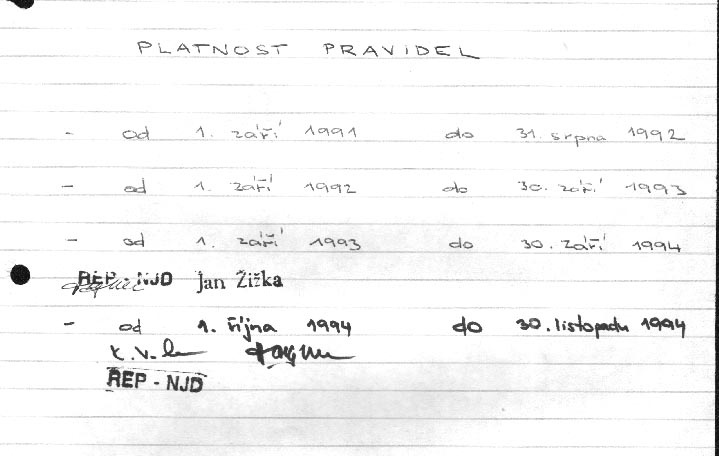 PLATNOST PRAVIDEL
- od 1. září 1991 do 31. srpna 1992
- od 1. září 1992 do 30. září 1993
- od 1. září 1993 do 30. září 1994
REP - NJD Jan Žižka
- od 1. října 1994 do 30. listopadu 1994
REP - NJD